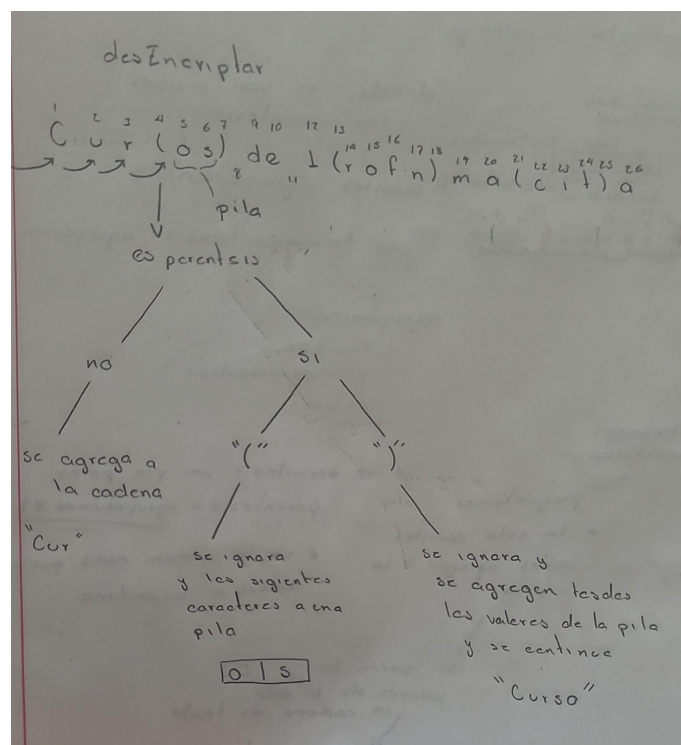 desEncriptar
1 2 3 4 5 6 7 9 10 12 13 14 15 16 17 18 19 20 21 22 23 24 25 26
Cur(os) de I(rofn)ma(cit)a
8 11
pila
es parentsis
no si
"(" ")"
se agrega a
la cadena
"Cur"
se ignora
y los sigientes
caracteres a una
pila
o | s
se ignora y
se agregan todos
los valores de la pila
y se continua
"Curso"